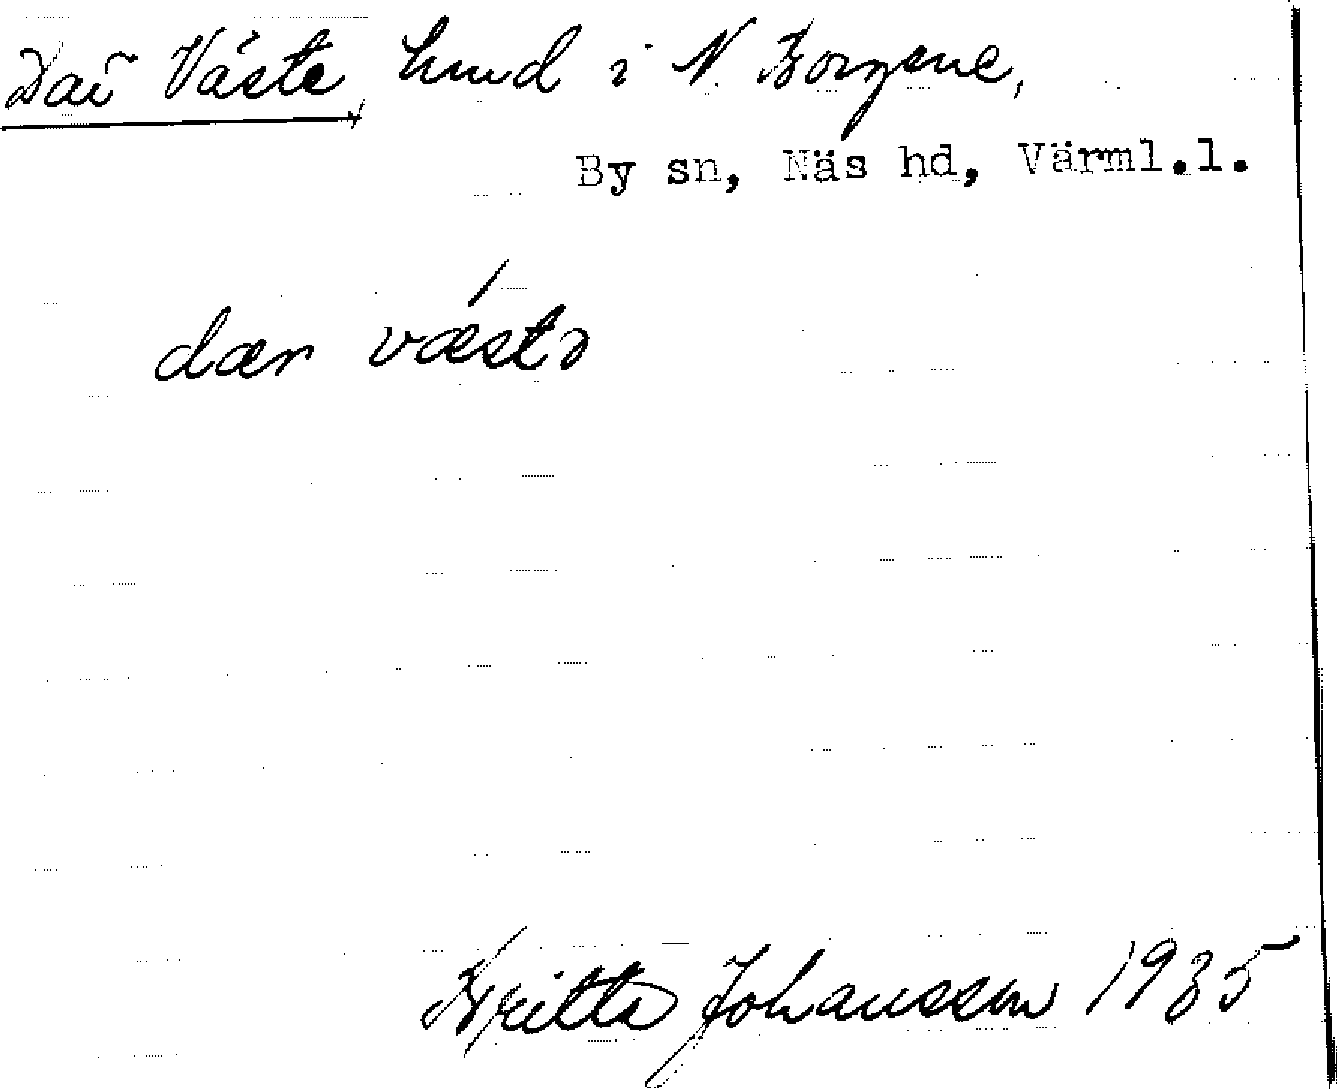 Där Väste, lund i N. Borgene,
By sn, Näs hd, Värml.l.
dær væstə
Britta Johansson 1935